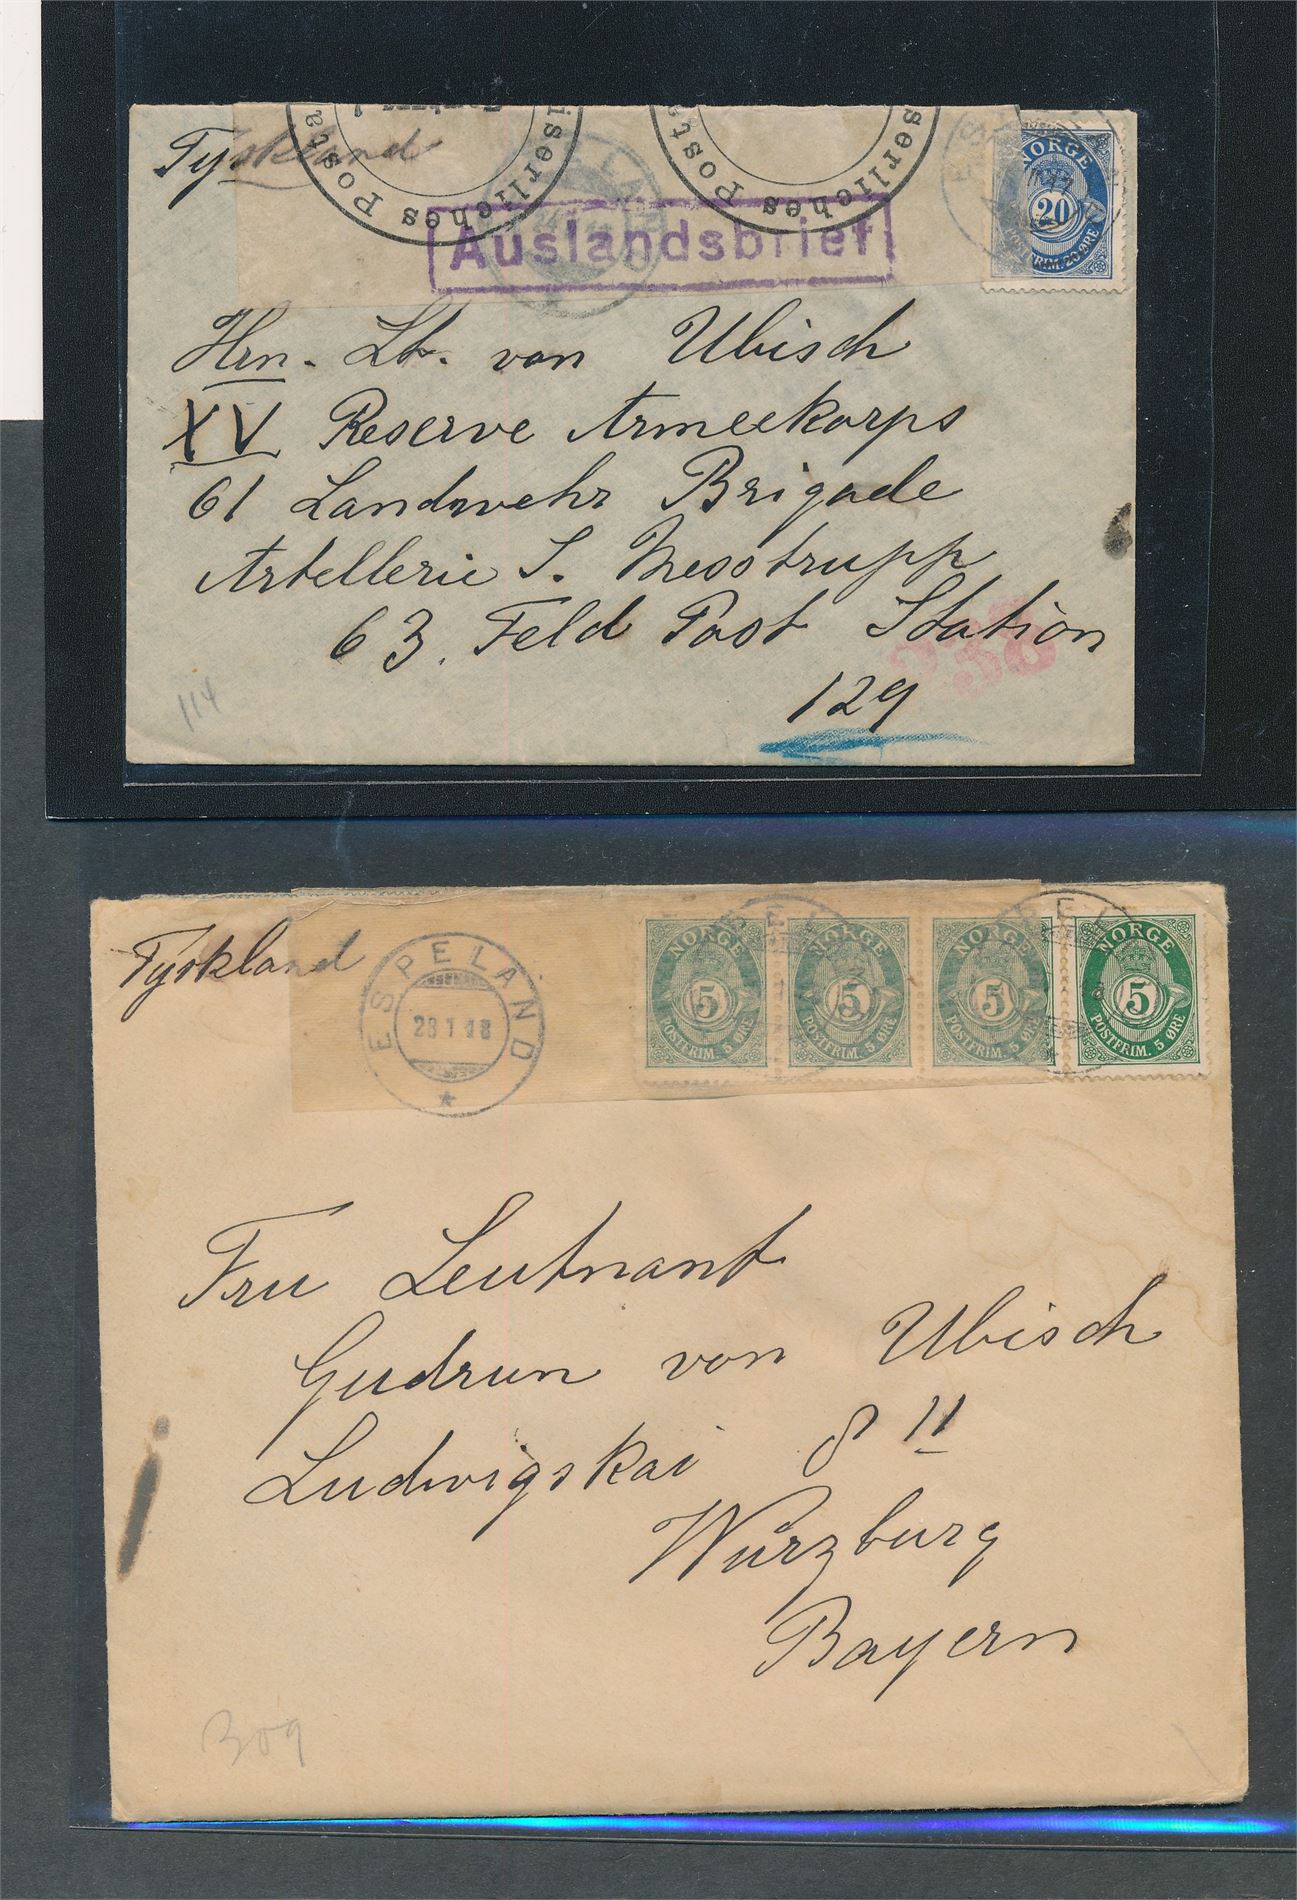 Tyskland
iserliches Posta
ats Posta
serliches Posta
NORGE
20
POSTFRIM. 20 ØRE
Auslandsbrief
Hrn. Lt. von Ubisch
XV Reserve Armeekorps
61 Landwehr Brigade
Artellerie S. Messtrupp
63. Feld Post Station
129
114
Tyskland
ESPELAND
23 1 18
NORGE NORGE NORGE NORGE
5 5 5 5
POSTFRIM. 5 ØRE POSTFRIM. 5 ØRE POSTFRIM. 5 ØRE POSTFRIM. 5 ØRE
Fru Leutnant
Gudrun von Ubisch
Ludwigskai 8 II
Würzburg
Bayern
309